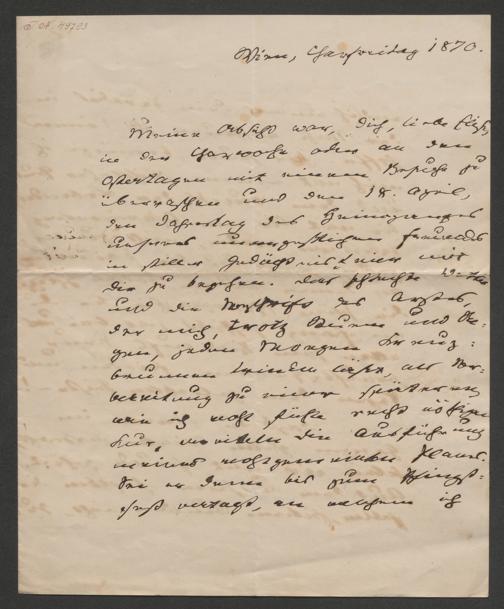 Wien, Charfreitag 1870.
Meine Absicht war, Dich, liebe
in der Charwoche oder an den
Ostertagen mit einem Besuche zu
überraschen und den 18. April,
den Jahrestag des Heimganges
unseres unvergeßlichen Freundes
in stiller Gedächtnißfeier mit
Dir zu begehen. Das schlechte Wetter
und die Vorschrift des Arztes,
der mich, trotz Sturm und Re-
gen, jeden Morgen Kreuz-
brunnen trinken läßt, als Vor-
bereitung zu einer späteren
wie ich wohl fühle recht nöthigen
Kur, vereiteln die Ausführung
meines wohlgemeinten Planes.
Sei es denn bis zum Pfingst-
fest vertagt, an welchem ich